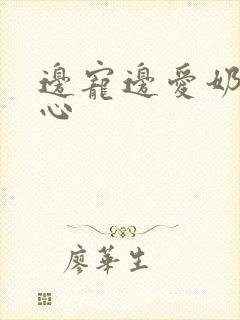 邊寵邊愛奶
心
廖華生